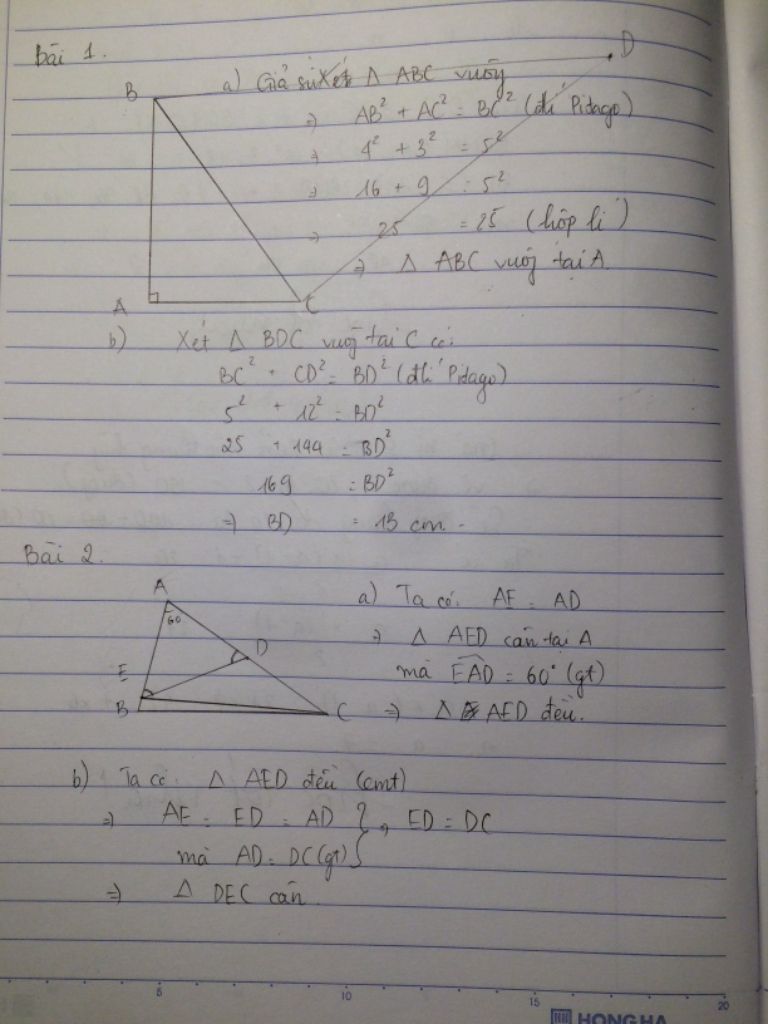 Bài 1.
B
D
a) Giả sử Xét Δ ABC vuông
⇒ AB² + AC² = BC² (đlí Pidago)
⇒ 4² + 3² = 5²
⇒ 16 + 9 = 5²
⇒ 25 = 25 (hợp lí)
⇒ Δ ABC vuông tại A
A
C
b) Xét Δ BDC vuông tại C có:
BC² + CD² = BD² (đlí Pidago)
5² + 12² = BD²
25 + 144 = BD²
169 = BD²
⇒ BD = 13 cm.
Bài 2.
A
60
D
E
B
C
a) Ta có: AE = AD
⇒ Δ AED cân tại A
mà EAD = 60° (gt)
⇒ Δ AED đều.
b) Ta có: Δ AED đều (cmt)
⇒ AE = ED = AD } ⇒ ED = DC
mà AD = DC (gt)
⇒ Δ DEC cân
5 10 15 20
HONG HA